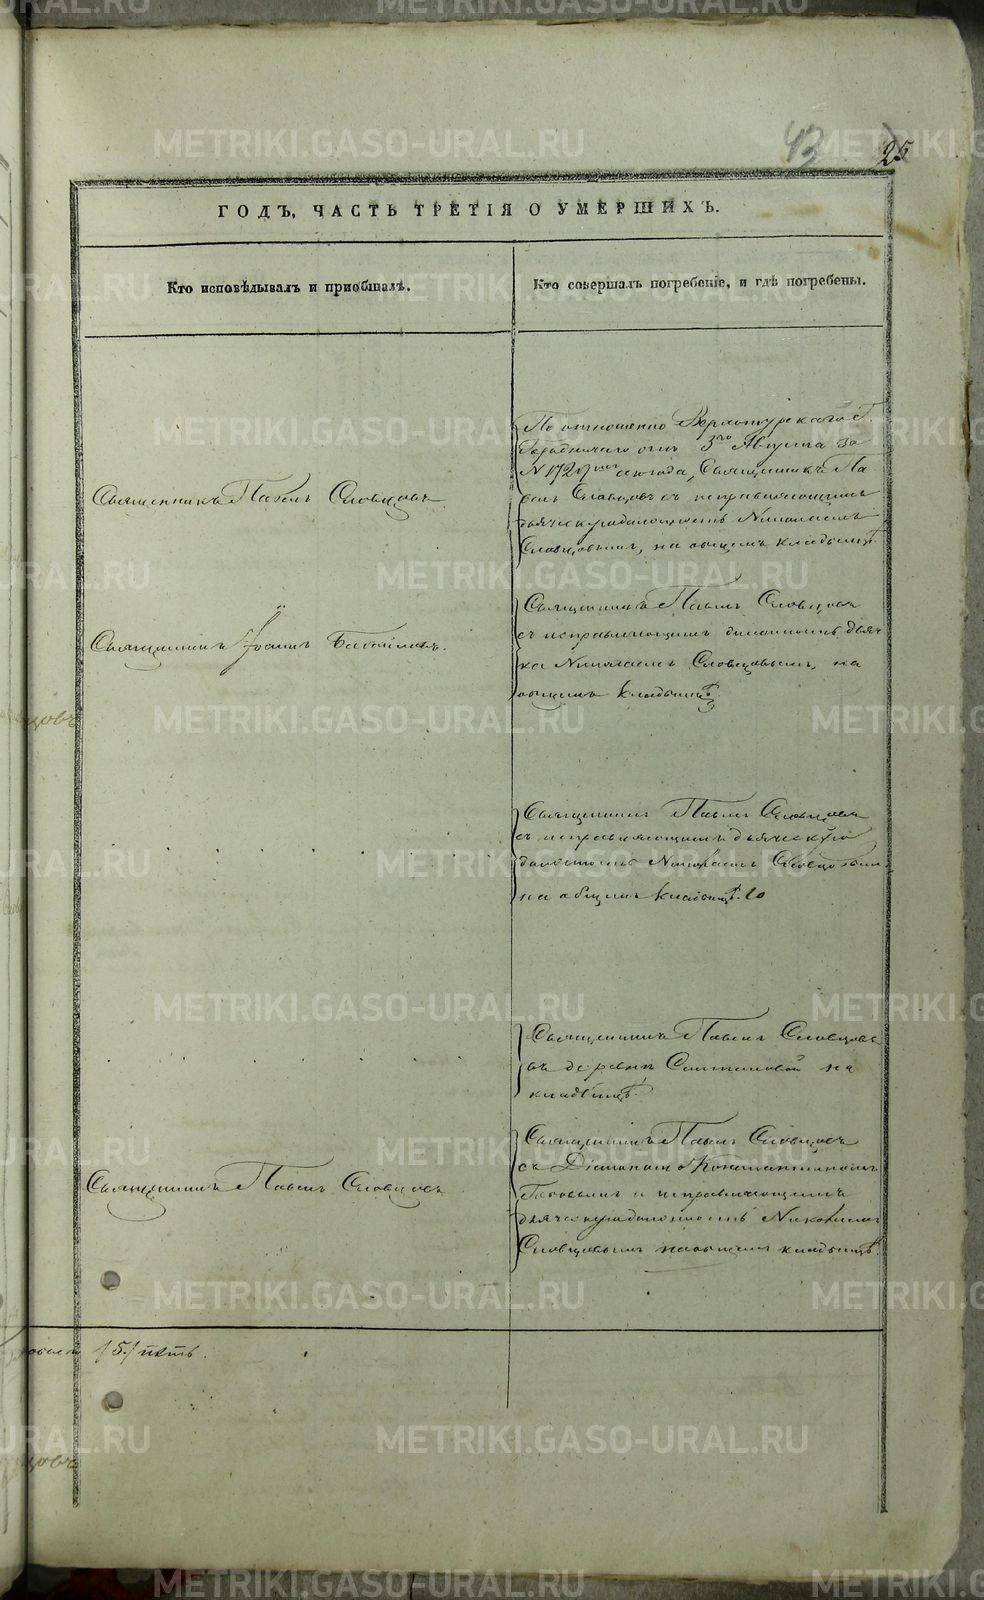 43
25
ГОДЪ, ЧАСТЬ ТРЕТІЯ О УМЕРШИХЪ.
Кто исповѣдывалъ и приобщалъ.
Кто совершалъ погребеніе, и гдѣ погребены.
По отношенію Верхотурскаго Г.
Городничаго отъ 3го Августа за
N 172 сего года, Священникъ Па
велъ Словцовъ съ исправляющимъ
дьяческую должность Николаемъ
Словцовымъ, на общемъ кладбищѣ.
Священникъ Павелъ Словцовъ
Священникъ Павелъ Словцовъ
съ исправляющимъ должность дьяч
ка Николаемъ Словцовымъ, на
общемъ кладбищѣ.
Священникъ Іоаннъ
Священникъ Павелъ Словцовъ
съ исправляющимъ дьяческую
должность Николаемъ Словцовымъ
на общемъ кладбищѣ.
Священникъ Павелъ Словцовъ
въ деревнѣ на
кладбищѣ.
Священникъ Павелъ Словцовъ
съ Діакономъ Константиномъ
Поповымъ и исправляющимъ
дьяческую должность Николаемъ
Словцовымъ на общемъ кладбищѣ.
Священникъ Павелъ Словцовъ
/5/ пять.
METRIKI.GASO-URAL.RU